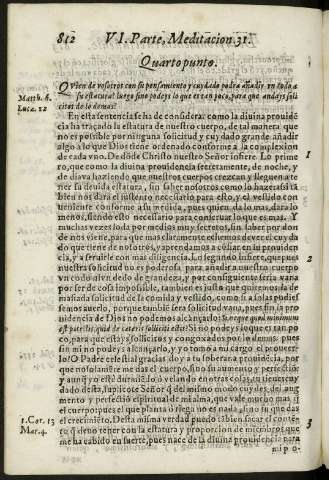 812 VI. Parte, Meditacion. 31.
Quarto punto.
Matth. 6.
Luca. 12
QVien de vosotros con su pensamiento y cuydado podra añadir vn codo a
su estatura? luego sino podeys lo que es tan poco, para que andays soli
citos de lo demas?
En esta sentencia se ha de considerar como la diuina prouidẽ
cia ha traçado la estatura de nuestro cuerpo, de tal manera que
no es possible por ninguna solicitud y cuydado grande añadir
algo a lo que Dios tiene ordenado conforme a la complexion
de cada vno. De dõde Christo nuestro Señor infiere. Lo prime
ro, que como la diuina prouidencia secretamente, de noche, y
de dia va haziendo que nuestros cuerpos crezcan y lleguen a te
ner su deuida estatura, sin saber nosotros como lo haze: assi tã
bien nos dara el sustento necessario para esto, y el vestido con
ueniente conforme a su medida, pues quien da lo mas, dara lo
menos, siendo esto necessario para conseruar lo que es mas. Y
muchas vezes lo da por medios muy secretos, sin saber por don
de nos viene, para que mas claramente echemos de ver el cuyda
do que tiene de nosotros, y aprendamos a cõfiar en su prouiden
cia, y a seruirle con mas diligencia. Lo segundo infiere, que pues
nuestra solicitud no es poderosa para añadir a nuestro cuerpo
vn codo ni vn dedo de grandeza, y por consiguiente seria vana
por ser de cosa impossible, tambien es justo que quitemos la de
masiada solicitud de la comida y vestido, como si a solas pudies
semos auerlo, porque tambiẽ sera solicitud vana, pues sin la pro
uidencia de Dios no podemos alcançarlo:
est potestis, quid de cæteris solliciti estis? Si no podeys lo que es tan po
co, para que estays solicitos y congoxados por lo demas? pues
sin mi no podeys alcançarlo, y yo tomo a mi cargo el proueer-
lo? O Padre celestial gracias doy a tu soberana prouidẽcia, por
que no solamẽte me das el cuerpo, sino su aumento y perfectiõ
y aun y este durmiẽdo o velando en otras cosas, tu tienes cuy
dado desta, suplicote Señor q̃ del mismo modo cuydes del aug-
mento y perfectiõ espiritual de mi alma, que vale mucho mas q̃
el cuerpo: pues el que planta o riega no es nada, sino tu que das
el crecimiẽto. Desta misma verdad puedo tambien sacar el cõten
to q̃ deuo tener con la estatura y proporcion de miembros que
me ha cabido en suerte, pues nace de la diuina prouidencia para
1. Cor. 13
Mar. 4.
1
2
3
mi p o-